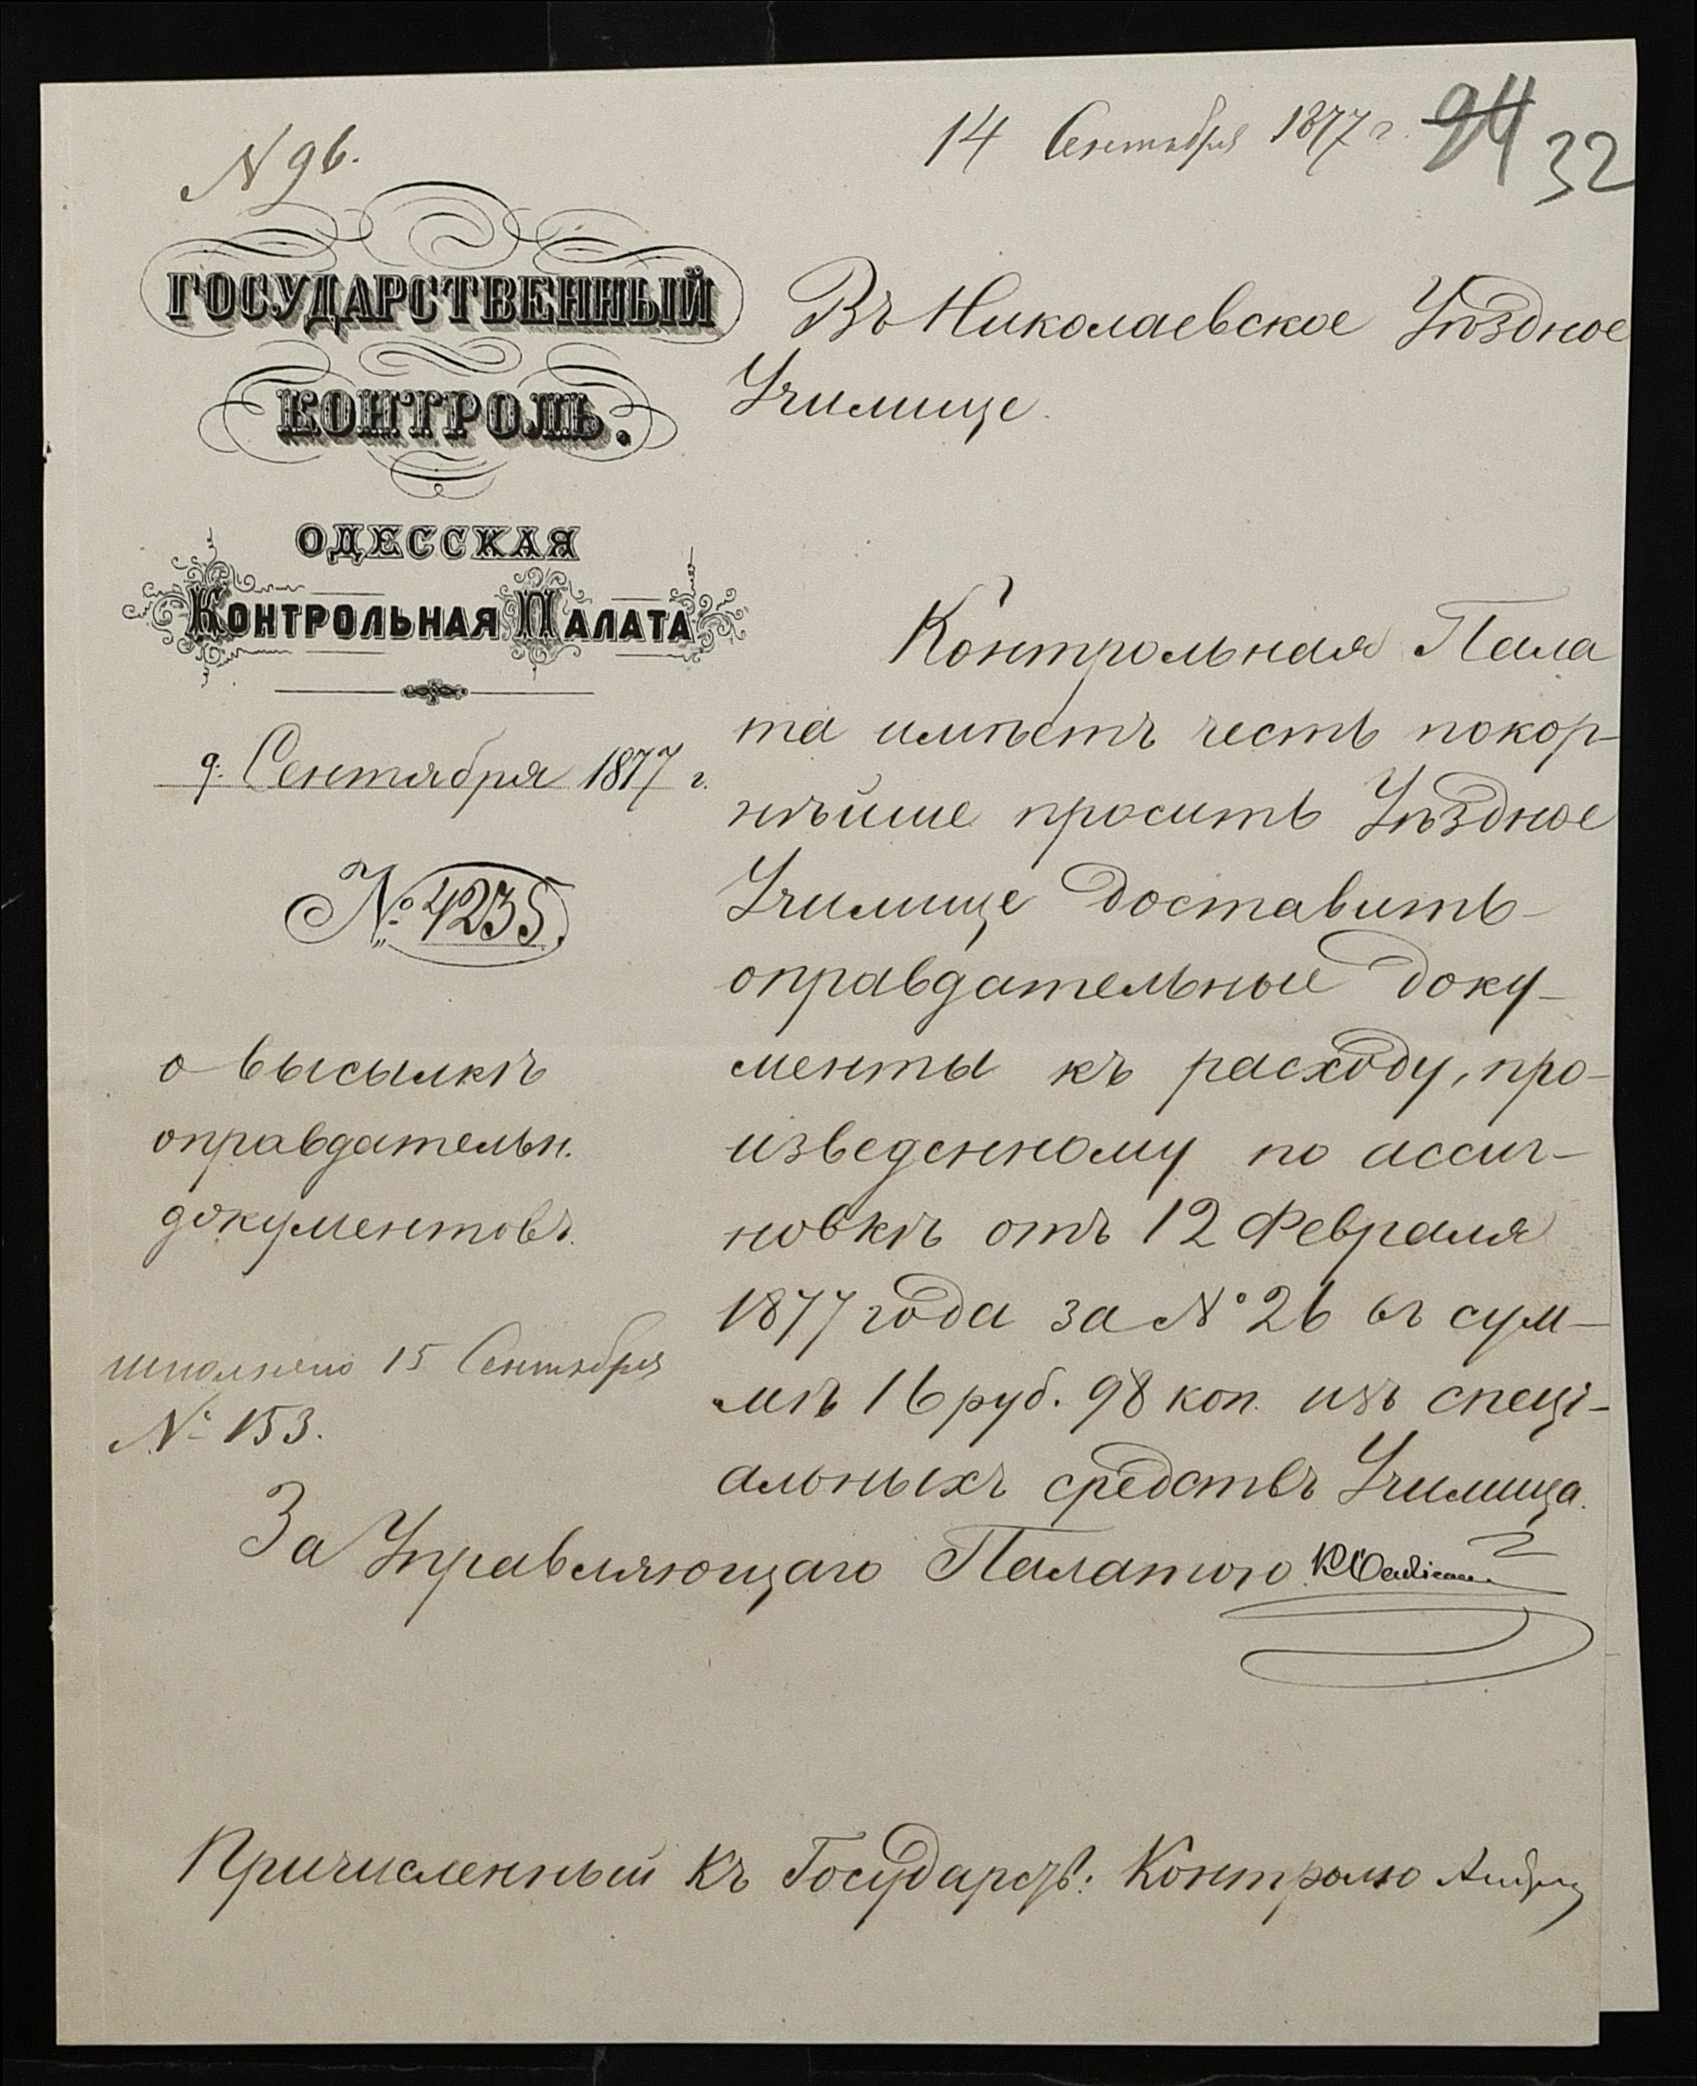 N 96.
14 Сентября 1877 г.
94 32
ГОСУДАРСТВЕННЫЙ
КОНТРОЛЬ.
ОДЕССКАЯ
КОНТРОЛЬНАЯ ПАЛАТА
9. Сентября 1877 г.
№ 4235.
о высылкѣ
оправдательн.
документовъ.
исполнено 15 Сентября
№ 153.
Въ Николаевское Уѣздное
Училище.
Контрольная Пала
та имѣетъ честь покор-
нѣйше просить Уѣздное
Училище доставить
оправдательные доку-
менты къ расходу, про-
изведенному по ассиг-
новкѣ отъ 12 Февраля
1877 года за № 26 въ сум-
мѣ 16 руб. 98 коп. изъ спеці-
альныхъ средствъ Училища.
За Управляющаго Палатою
Причисленный къ Государств: Контролю